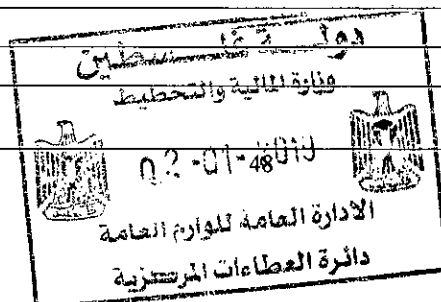 دولة فلسطين
وزارة المالية والتخطيط
02-01-2019
48
الادارة العامة للوازم العامة
دائرة العطاءات المركزية